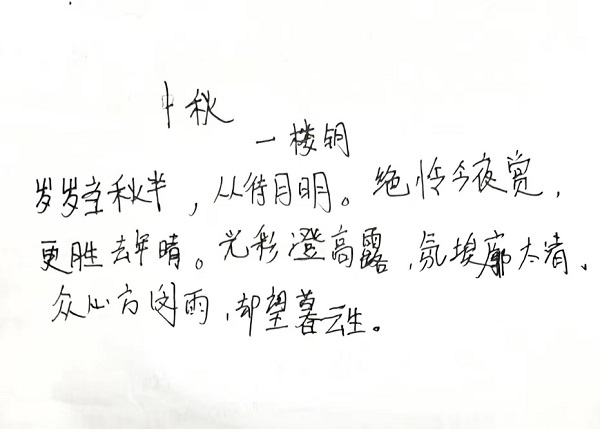 中秋
一楼钥
岁岁秋半，从待月明。绝怜今夜赏，
更胜去年晴。光彩澄高露，氛埃廓太清、
众心方闵雨，却望暮云生。